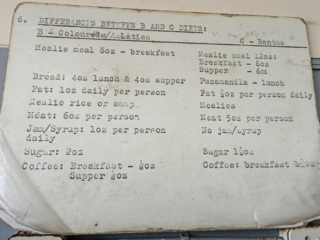 6. DIFFERANCES BETWEEN B AND C DIETS:
B - Coloureds/Asiatics    C - Bantus
Mealie meal 6oz - breakfast    Mealie meal 12oz:
Breakfast - 6oz
Supper - 6oz
Bread: 4oz lunch & 4oz supper    Puzamandla - lunch
Fat: 1oz daily per person    Fat ½oz per person daily
Mealie rice or samp    Mealies
Meat: 6oz per person    Meat 5oz per person
Jam/Syrup: 1oz per person    No jam/syrup
daily
Sugar: 2oz    Sugar 1½oz
Coffee: Breakfast - ½oz    Coffee: breakfast
Supper ½oz